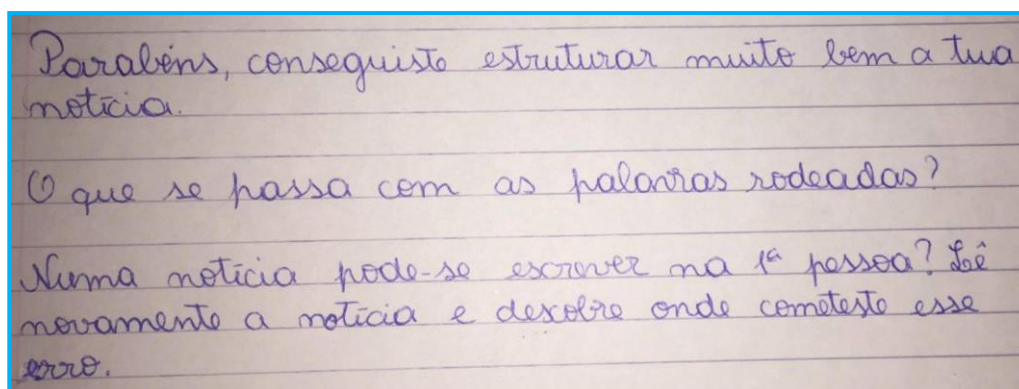 Parabéns, conseguiste estruturar muito bem a tua
notícia.
O que se passa com as palavras rodeadas?
Numa notícia pode-se escrever na 1ª pessoa? Lê
novamente a notícia e descobre onde cometeste esse
erro.